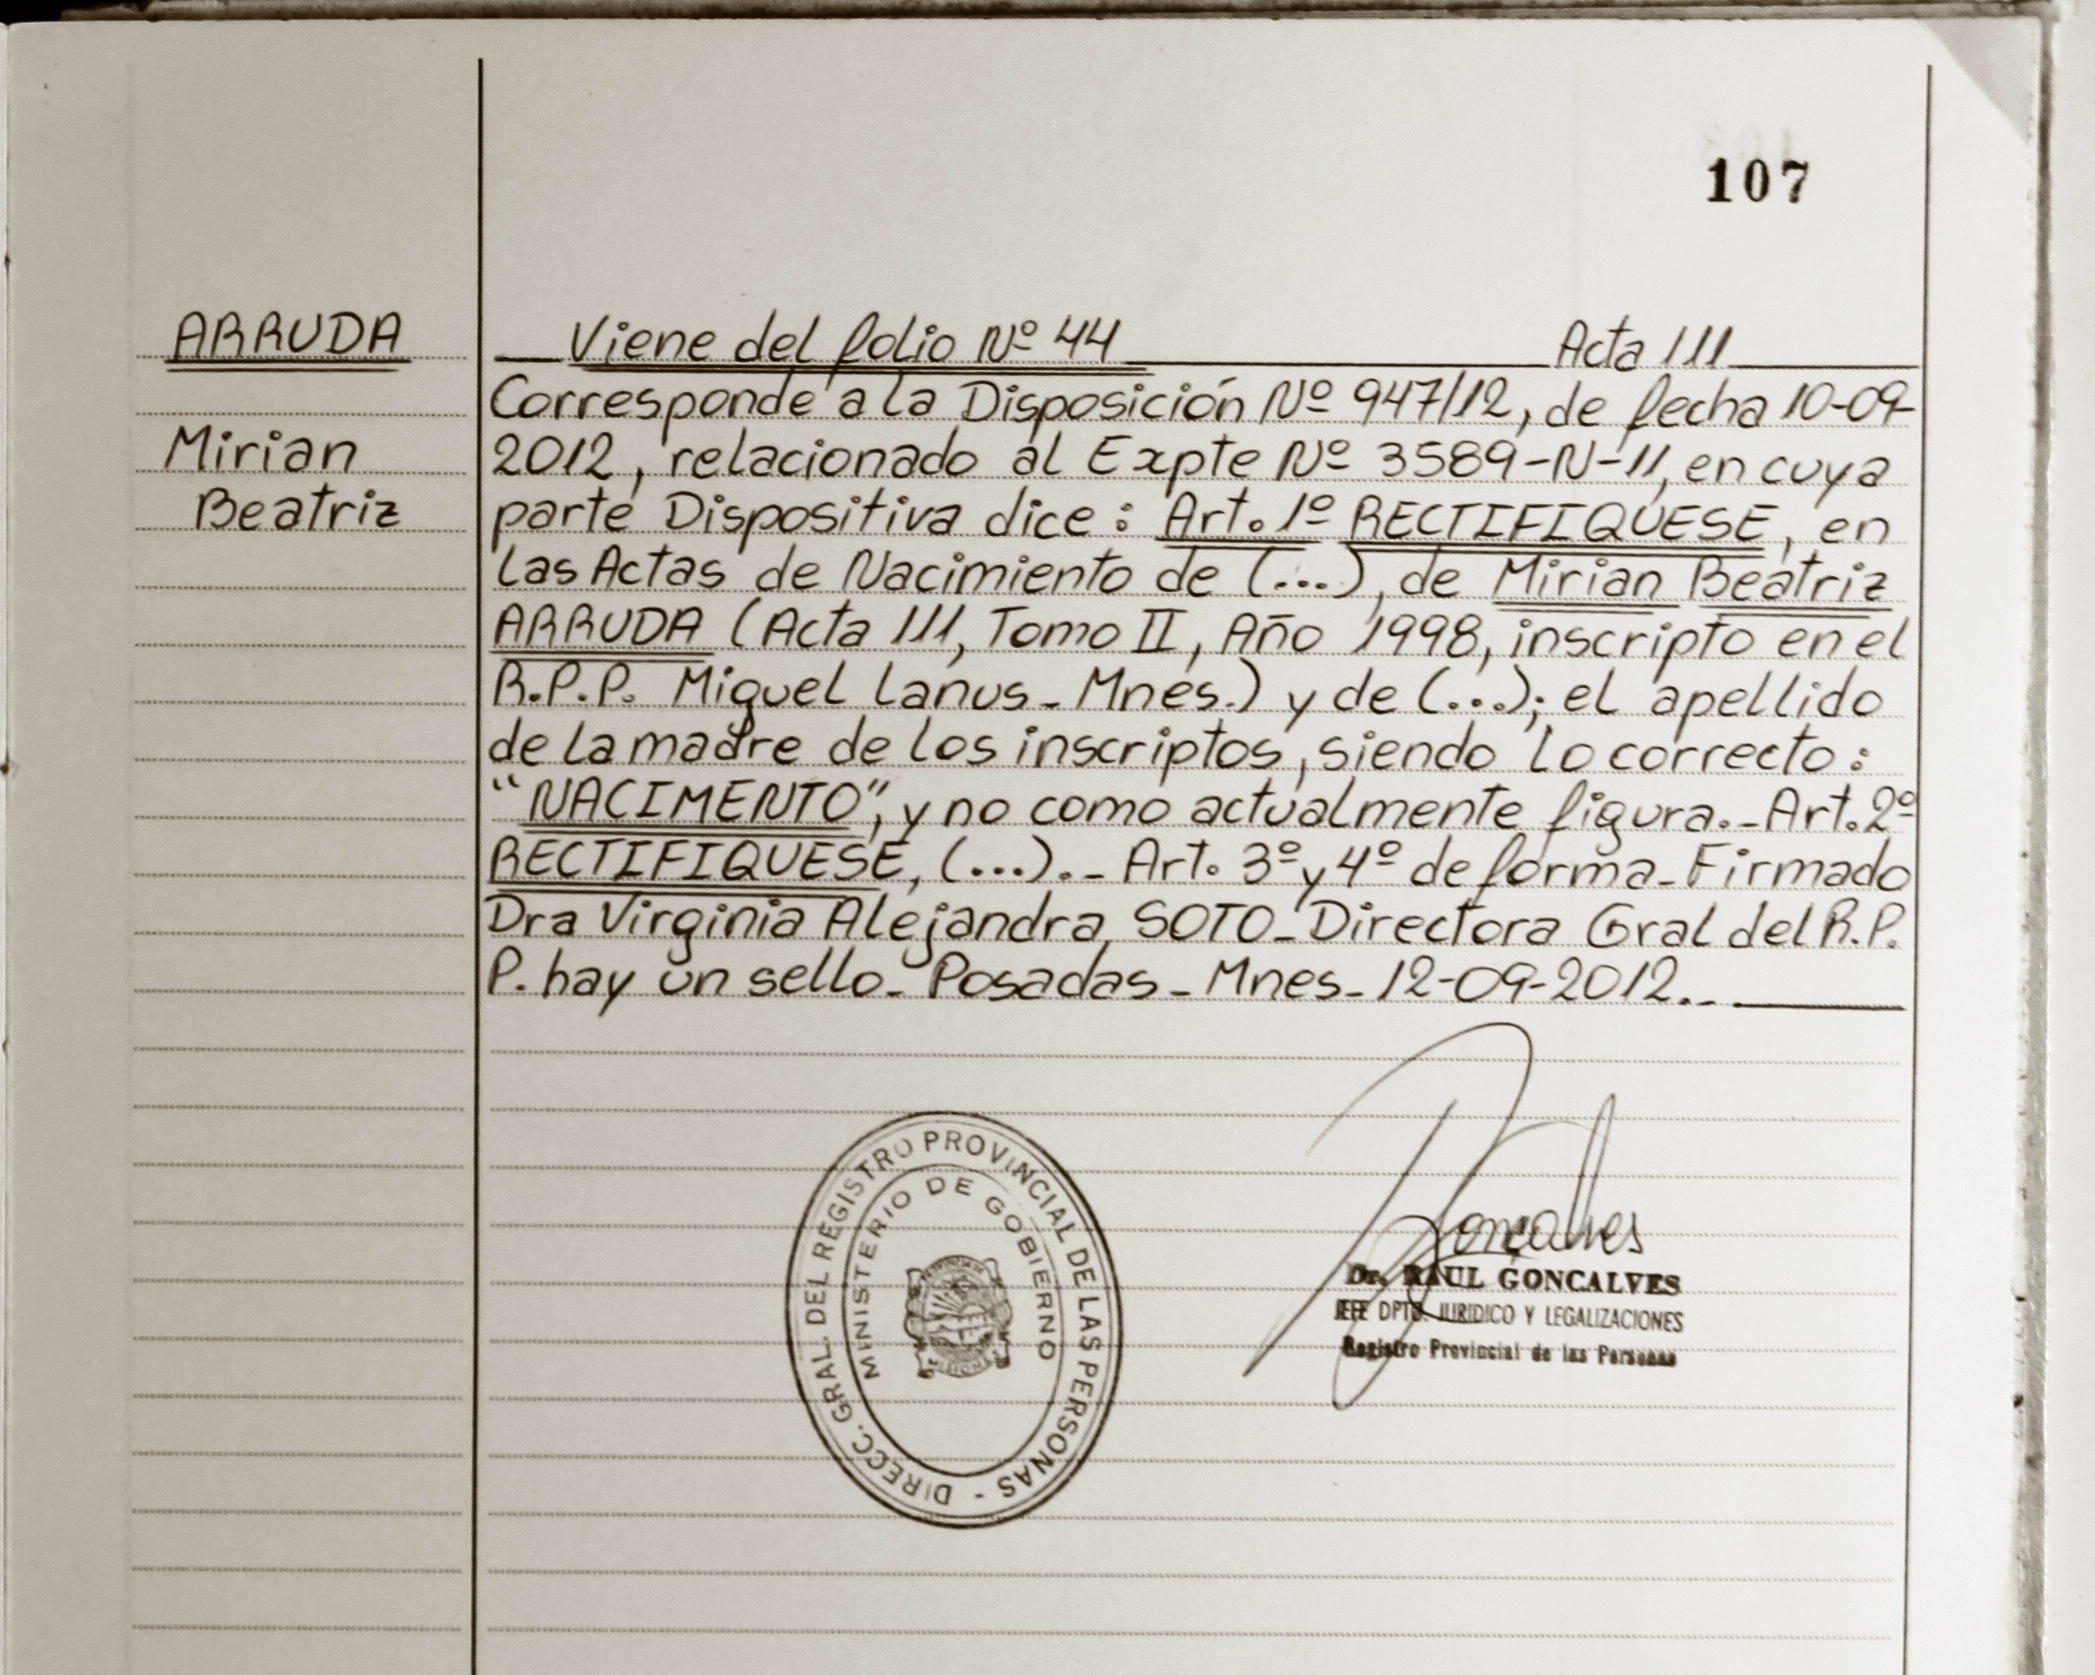 107
ARRUDA
Mirian
Beatriz
Viene del folio Nº 44 Acta 111
Corresponde a la Disposición Nº 947/12, de fecha 10-09-
2012, relacionado al Expte Nº 3589-N-11, en cuya
parte Dispositiva dice : Art. 1º RECTIFIQUESE, en
las Actas de Nacimiento de (...), de Mirian Beatriz
ARRUDA (Acta 111, Tomo II, Año 1998, inscripto en el
R.P.P. Miguel Lanus - Mnes.) y de (...); el apellido
de la madre de los inscriptos, siendo lo correcto :
"NACIMENTO", y no como actualmente figura. - Art. 2º
RECTIFIQUESE, (...). - Art. 3º y 4º de forma - Firmado
Dra Virginia Alejandra SOTO - Directora Gral del R.P.
P. hay un sello - Posadas - Mnes - 12-09-2012. -
DIRECC. GRAL. DEL REGISTRO PROVINCIAL DE LAS PERSONAS -
MINISTERIO DE GOBIERNO
Goncalves
Dr. RAUL GONCALVES
JEFE DPTO. JURIDICO Y LEGALIZACIONES
Registro Provincial de las Personas